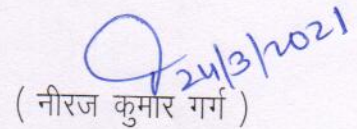 24/3/2021
( नीरज कुमार गर्ग )